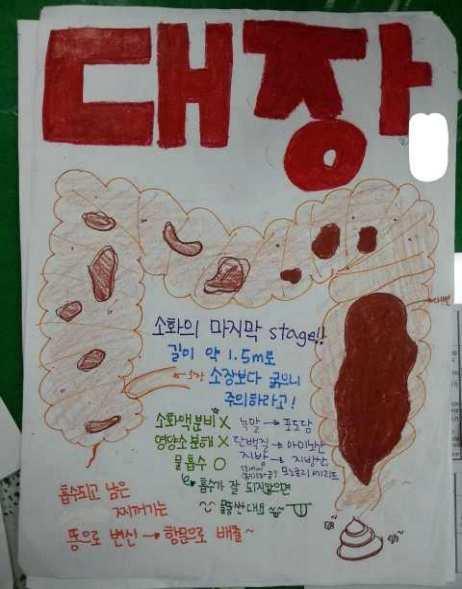 대장
대변
소화의 마지막 stage!!
길이 약 1.5m로
소장 소장보다 굵으니
주의하라고!
소화액분비 X 녹말 → 포도당
영양소분해 X 단백질 → 아미노산
물흡수 O 지방 → 지방산
모노글리세리드
흡수가 잘 되지않으면
흡수되고 남은
찌꺼기는
똥으로 변신 → 항문으로 배출~